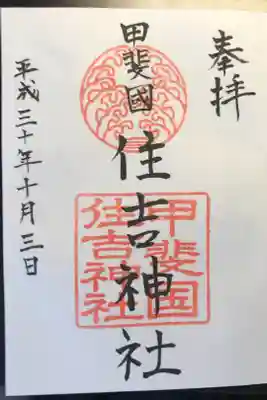 奉拝
甲斐國
住吉神社
甲斐国
住吉神社
平成三十年十月三日